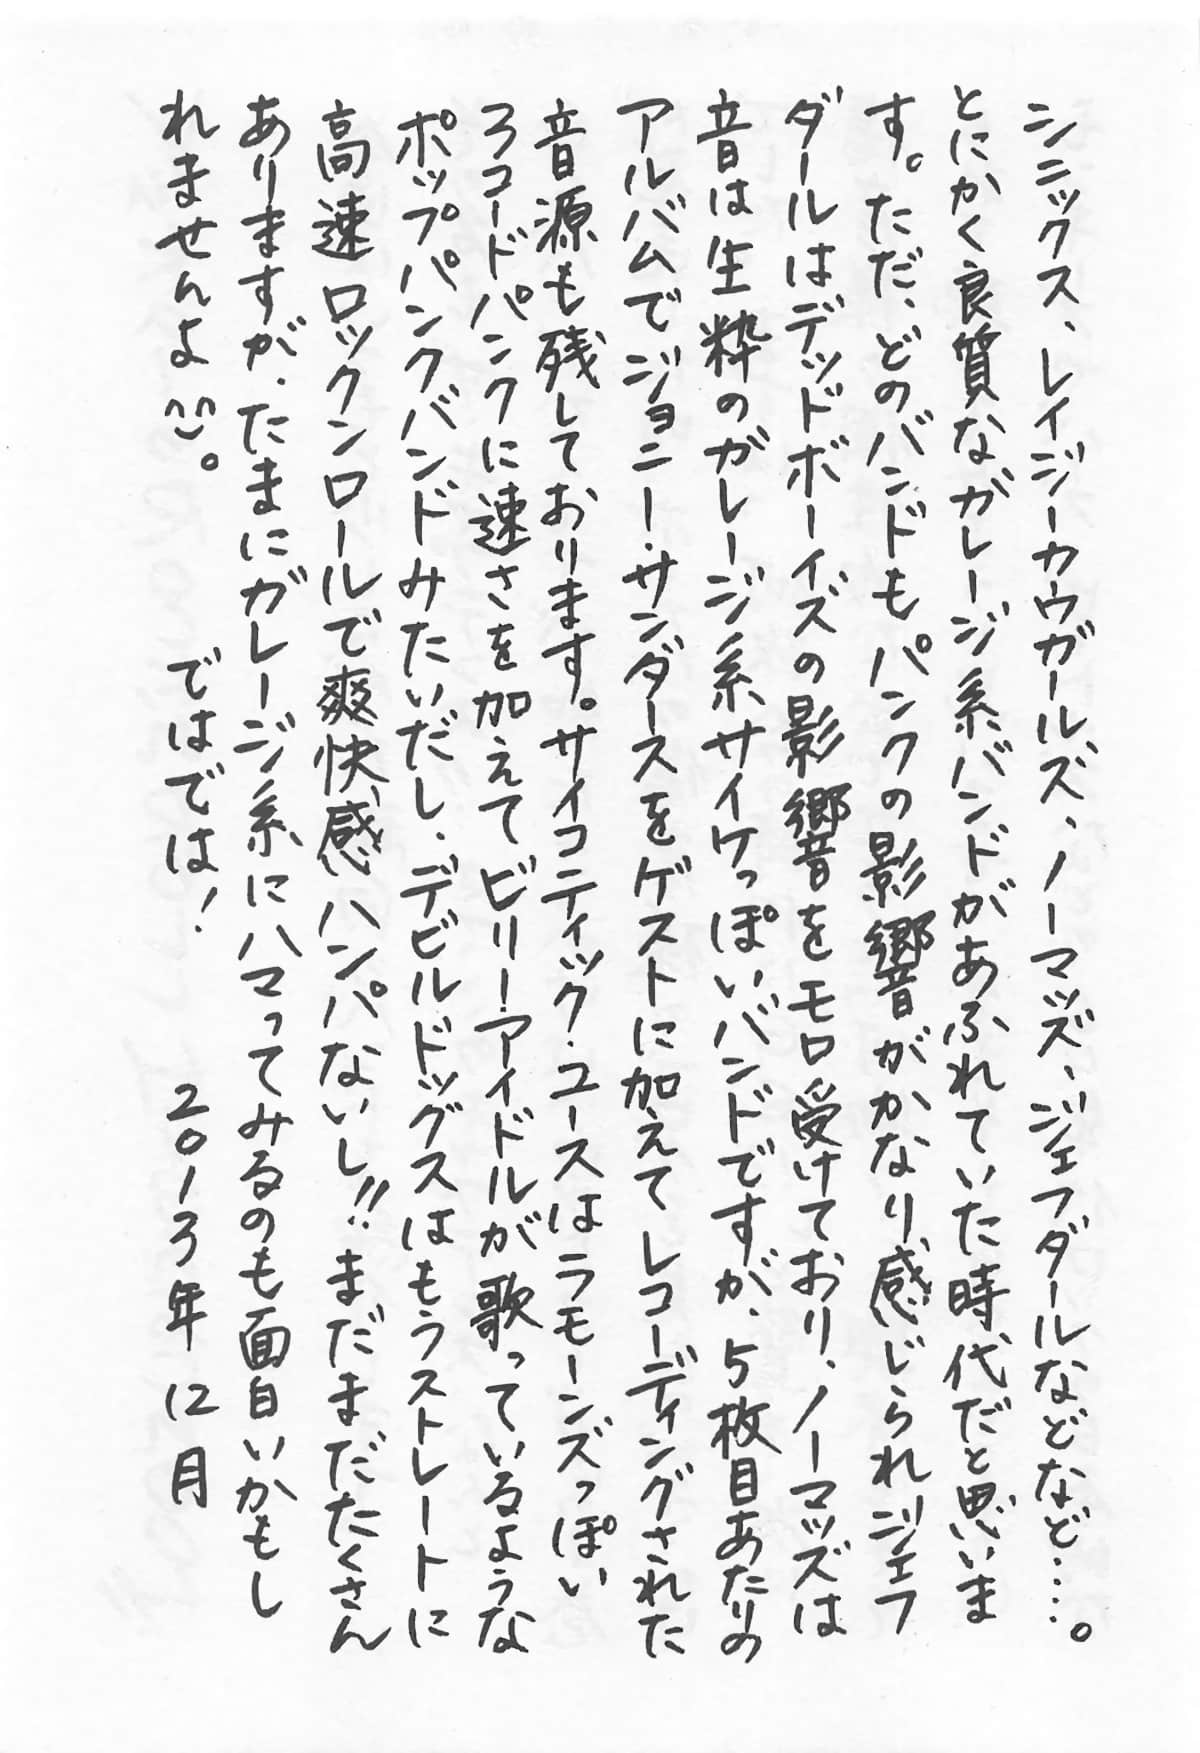 シニックス、レイジーカウガールズ、ノーマッズ、ジェフダールなどなど……。
とにかく良質なガレージ系バンドがあふれていた時代だと思いま
す。ただ、どのバンドもパンクの影響がかなり感じられジェフ
ダールはデッドボーイズの影響をモロ受けており、ノーマッズは
音は生粋のガレージ系サイケっぽいバンドですが、5枚目あたりの
アルバムでジョニー・サンダースをゲストに加えてレコーディングされた
音源も残しております。サイコティック・ユースはラモーンズっぽい
3コードパンクに速さを加えてビリー・アイドルが歌っているような
ポップパンクバンドみたいだし、デビルドッグスはもうストレートに
高速ロックンロールで爽快感ハンパないし!! まだまだたくさん
ありますが、たまにガレージ系にハマってみるのも面白いかもし
れませんよ^^。
ではでは! 2013年12月